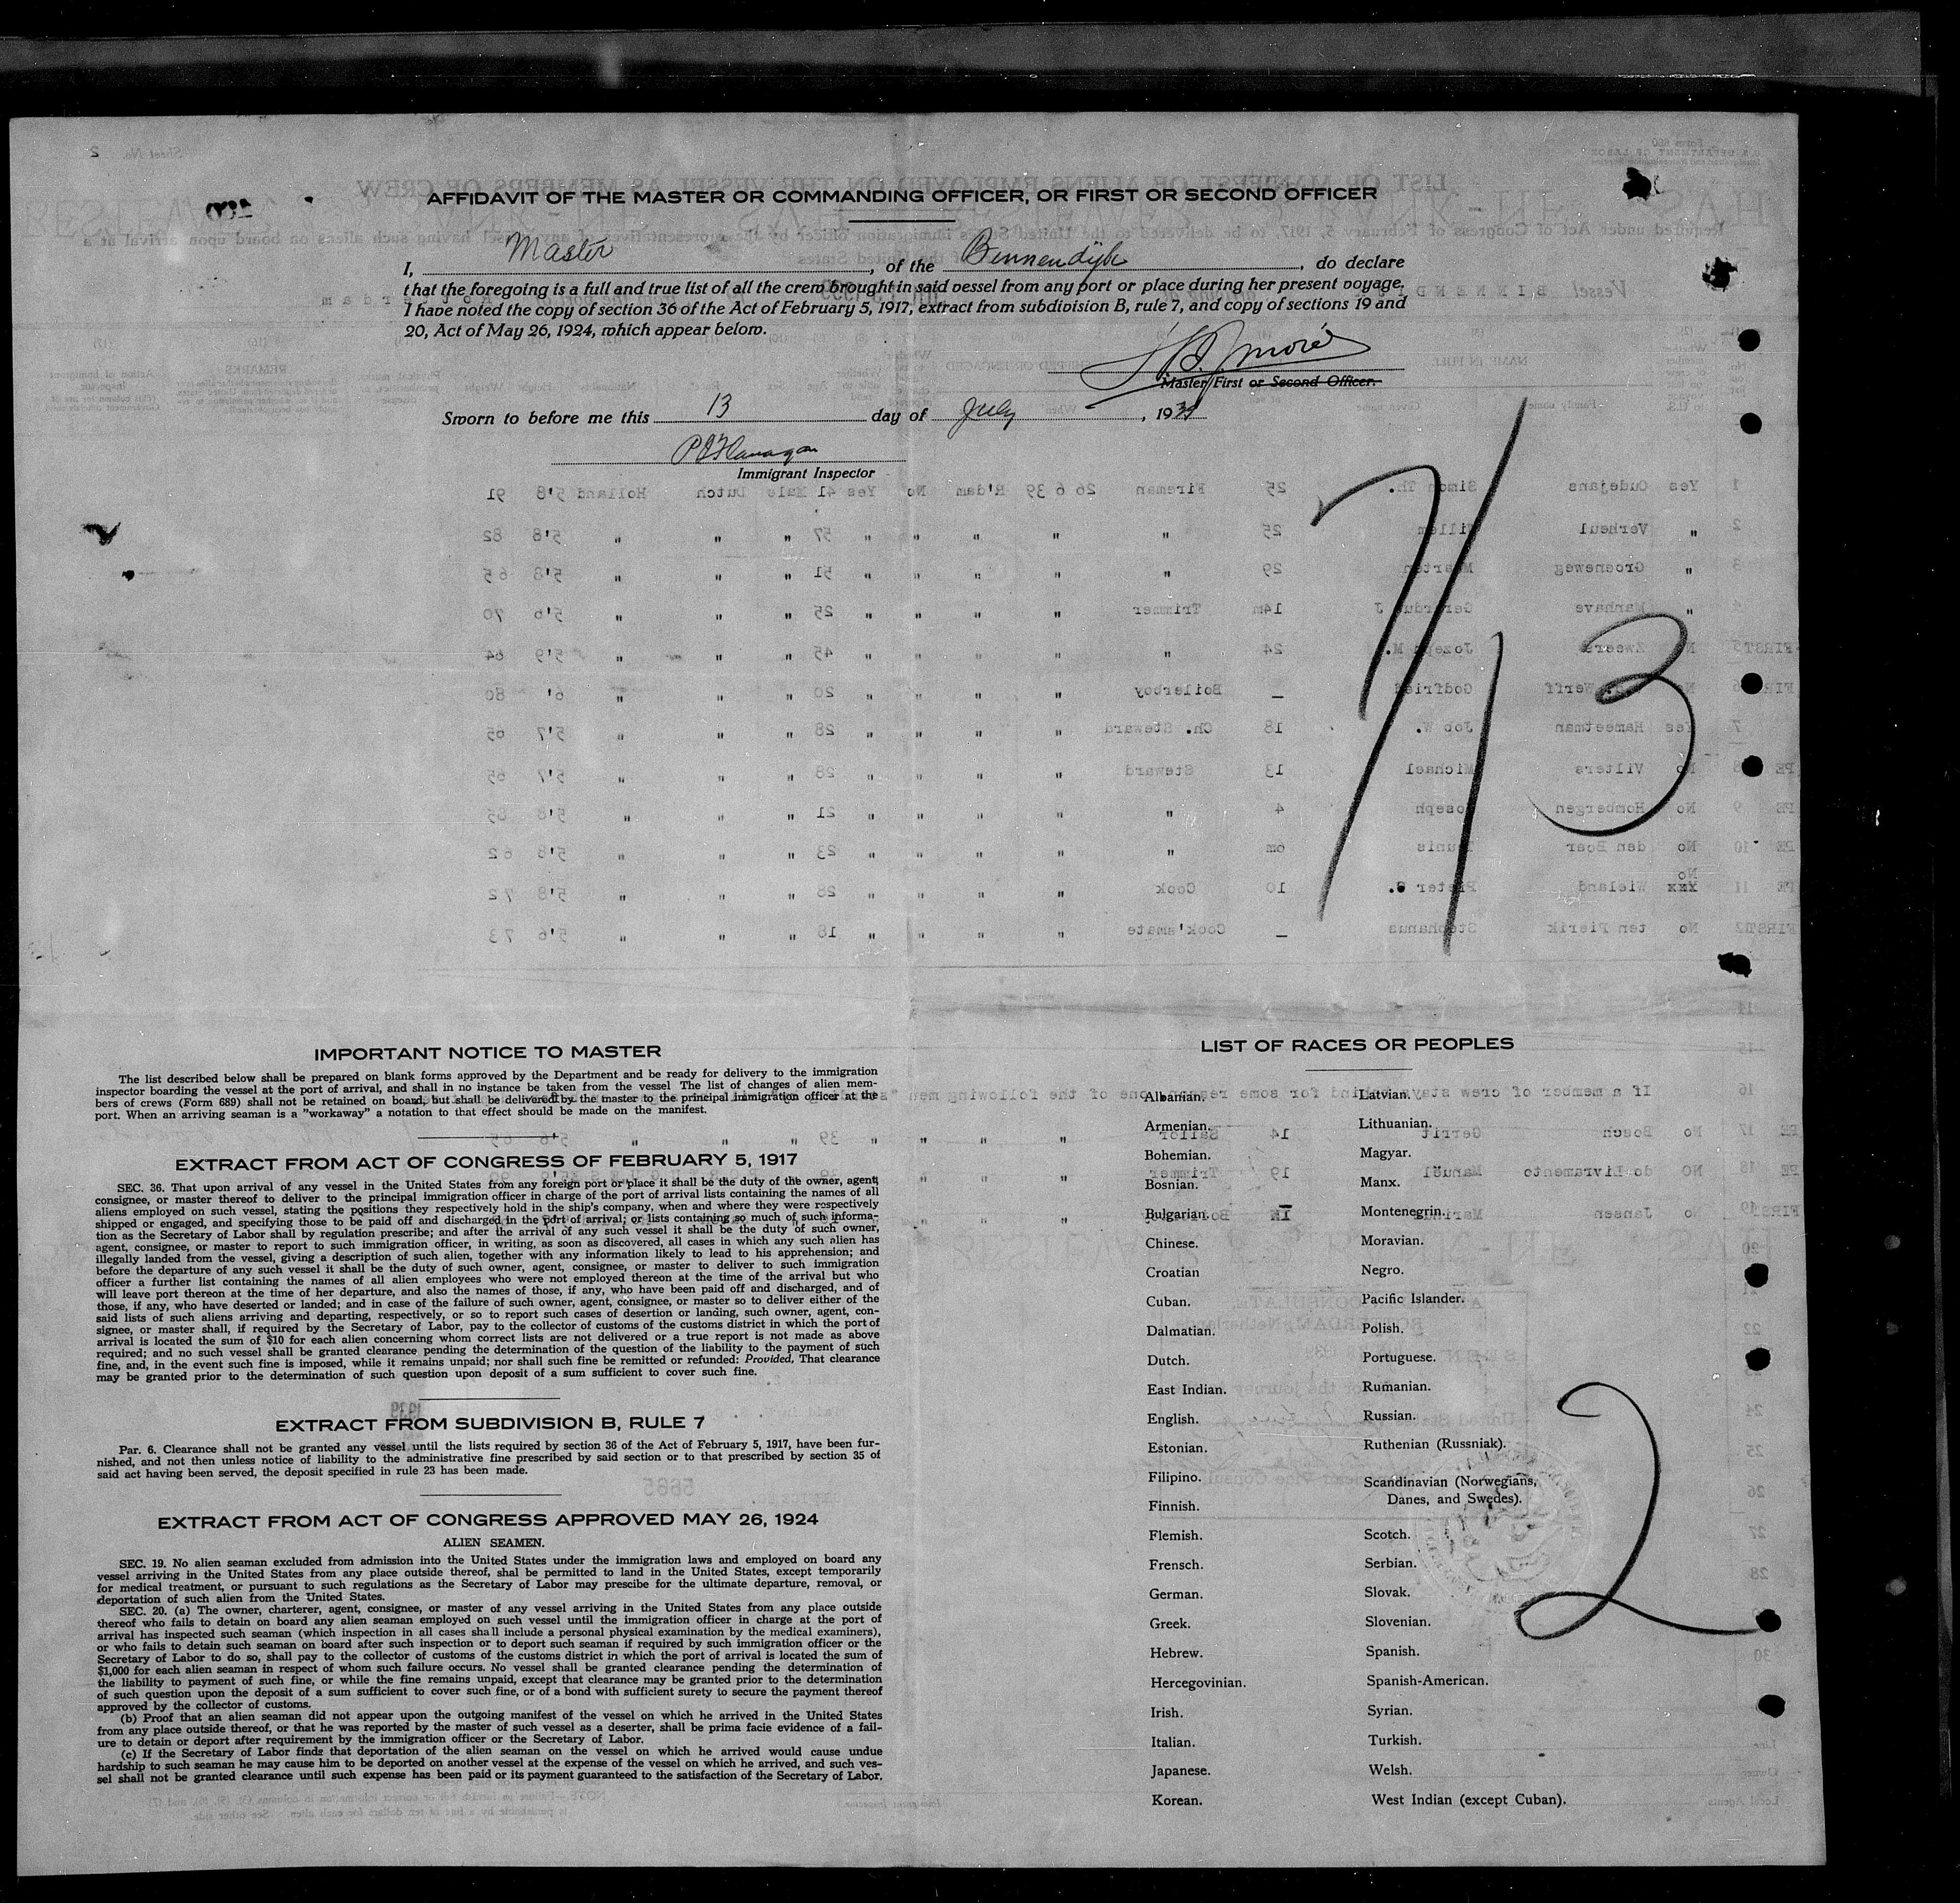 AFFIDAVIT OF THE MASTER OR COMMANDING OFFICER, OR FIRST OR SECOND OFFICER
I, Master, of the Binnendijk, do declare
that the foregoing is a full and true list of all the crew brought in said vessel from any port or place during her present voyage.
I have noted the copy of section 36 of the Act of February 5, 1917, extract from subdivision B, rule 7, and copy of sections 19 and
20, Act of May 26, 1924, which appear below.
Master/First or Second Officer.
Sworn to before me this 13 day of July, 1939
P J Flanagan
Immigrant Inspector
7/13
IMPORTANT NOTICE TO MASTER
The list described below shall be prepared on blank forms approved by the Department and be ready for delivery to the immigration
inspector boarding the vessel at the port of arrival, and shall in no instance be taken from the vessel The list of changes of alien mem-
bers of crews (Form 689) shall not be retained on board, but shall be delivered by the master to the principal immigration officer at the
port. When an arriving seaman is a "workaway" a notation to that effect should be made on the manifest.
EXTRACT FROM ACT OF CONGRESS OF FEBRUARY 5, 1917
SEC. 36. That upon arrival of any vessel in the United States from any foreign port or place it shall be the duty of the owner, agent,
consignee, or master thereof to deliver to the principal immigration officer in charge of the port of arrival lists containing the names of all
aliens employed on such vessel, stating the positions they respectively hold in the ship's company, when and where they were respectively
shipped or engaged, and specifying those to be paid off and discharged in the port of arrival; or lists containing so much of such informa-
tion as the Secretary of Labor shall by regulation prescribe; and after the arrival of any such vessel it shall be the duty of such owner,
agent, consignee, or master to report to such immigration officer, in writing, as soon as discovered, all cases in which any such alien has
illegally landed from the vessel, giving a description of such alien, together with any information likely to lead to his apprehension; and
before the departure of any such vessel it shall be the duty of such owner, agent, consignee, or master to deliver to such immigration
officer a further list containing the names of all alien employees who were not employed thereon at the time of the arrival but who
will leave port thereon at the time of her departure, and also the names of those, if any, who have been paid off and discharged, and of
those, if any, who have deserted or landed; and in case of the failure of such owner, agent, consignee, or master so to deliver either of the
said lists of such aliens arriving and departing, respectively, or so to report such cases of desertion or landing, such owner, agent, con-
signee, or master shall, if required by the Secretary of Labor, pay to the collector of customs of the customs district in which the port of
arrival is located the sum of $10 for each alien concerning whom correct lists are not delivered or a true report is not made as above
required; and no such vessel shall be granted clearance pending the determination of the question of the liability to the payment of such
fine, and, in the event such fine is imposed, while it remains unpaid; nor shall such fine be remitted or refunded: Provided, That clearance
may be granted prior to the determination of such question upon deposit of a sum sufficient to cover such fine.
EXTRACT FROM SUBDIVISION B, RULE 7
Par. 6. Clearance shall not be granted any vessel until the lists required by section 36 of the Act of February 5, 1917, have been fur-
nished, and not then unless notice of liability to the administrative fine prescribed by said section or to that prescribed by section 35 of
said act having been served, the deposit specified in rule 23 has been made.
EXTRACT FROM ACT OF CONGRESS APPROVED MAY 26, 1924
ALIEN SEAMEN.
SEC. 19. No alien seaman excluded from admission into the United States under the immigration laws and employed on board any
vessel arriving in the United States from any place outside thereof, shal be permitted to land in the United States, except temporarily
for medical treatment, or pursuant to such regulations as the Secretary of Labor may prescibe for the ultimate departure, removal, or
deportation of such alien from the United States.
SEC. 20. (a) The owner, charterer, agent, consignee, or master of any vessel arriving in the United States from any place outside
thereof who fails to detain on board any alien seaman employed on such vessel until the immigration officer in charge at the port of
arrival has inspected such seaman (which inspection in all cases shall include a personal physical examination by the medical examiners),
or who fails to detain such seaman on board after such inspection or to deport such seaman if required by such immigration officer or the
Secretary of Labor to do so, shall pay to the collector of customs of the customs district in which the port of arrival is located the sum of
$1,000 for each alien seaman in respect of whom such failure occurs. No vessel shall be granted clearance pending the determination of
the liability to payment of such fine, or while the fine remains unpaid, except that clearance may be granted prior to the determination
of such question upon the deposit of a sum sufficient to cover such fine, or of a bond with sufficient surety to secure the payment thereof
approved by the collector of customs.
(b) Proof that an alien seaman did not appear upon the outgoing manifest of the vessel on which he arrived in the United States
from any place outside thereof, or that he was reported by the master of such vessel as a deserter, shall be prima facie evidence of a fail-
ure to detain or deport after requirement by the immigration officer or the Secretary of Labor.
(c) If the Secretary of Labor finds that deportation of the alien seaman on the vessel on which he arrived would cause undue
hardship to such seaman he may cause him to be deported on another vessel at the expense of the vessel on which he arrived, and such ves-
sel shall not be granted clearance until such expense has been paid or its payment guaranteed to the satisfaction of the Secretary of Labor.
LIST OF RACES OR PEOPLES
Albanian.
Armenian.
Bohemian.
Bosnian.
Bulgarian.
Chinese.
Croatian
Cuban.
Dalmatian.
Dutch.
East Indian.
English.
Estonian.
Filipino.
Finnish.
Flemish.
Frensch.
German.
Greek.
Hebrew.
Hercegovinian.
Irish.
Italian.
Japanese.
Korean.
Latvian.
Lithuanian.
Magyar.
Manx.
Montenegrin.
Moravian.
Negro.
Pacific Islander.
Polish.
Portuguese.
Rumanian.
Russian.
Ruthenian (Russniak).
Scandinavian (Norwegians,
Danes, and Swedes).
Scotch.
Serbian.
Slovak.
Slovenian.
Spanish.
Spanish-American.
Syrian.
Turkish.
Welsh.
West Indian (except Cuban).
2